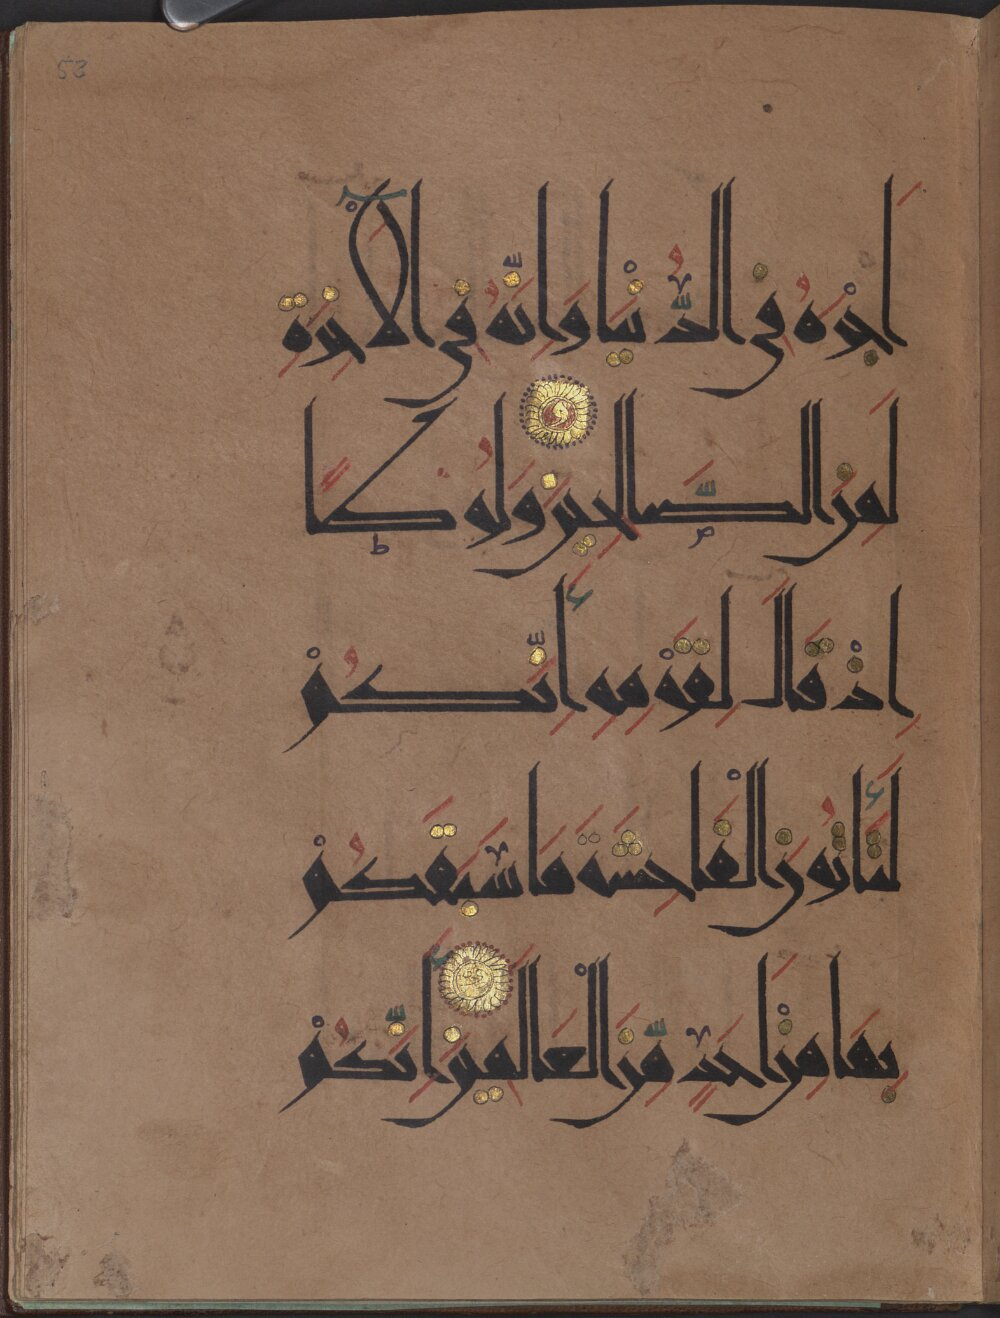 اَجْرَهُ فِي الدُّنْيَا وَاِنَّهُ فِي الْاٰخِرَةِ
لَمِنَ الصَّالِحِينَ وَلُوطًا
اِذْ قَالَ لِقَوْمِهِ اِنَّكُمْ
لَتَأْتُونَ الْفَاحِشَةَ مَا سَبَقَكُمْ
بِهَا مِنْ اَحَدٍ مِّنَ الْعَالَمِينَ اَئِنَّكُمْ